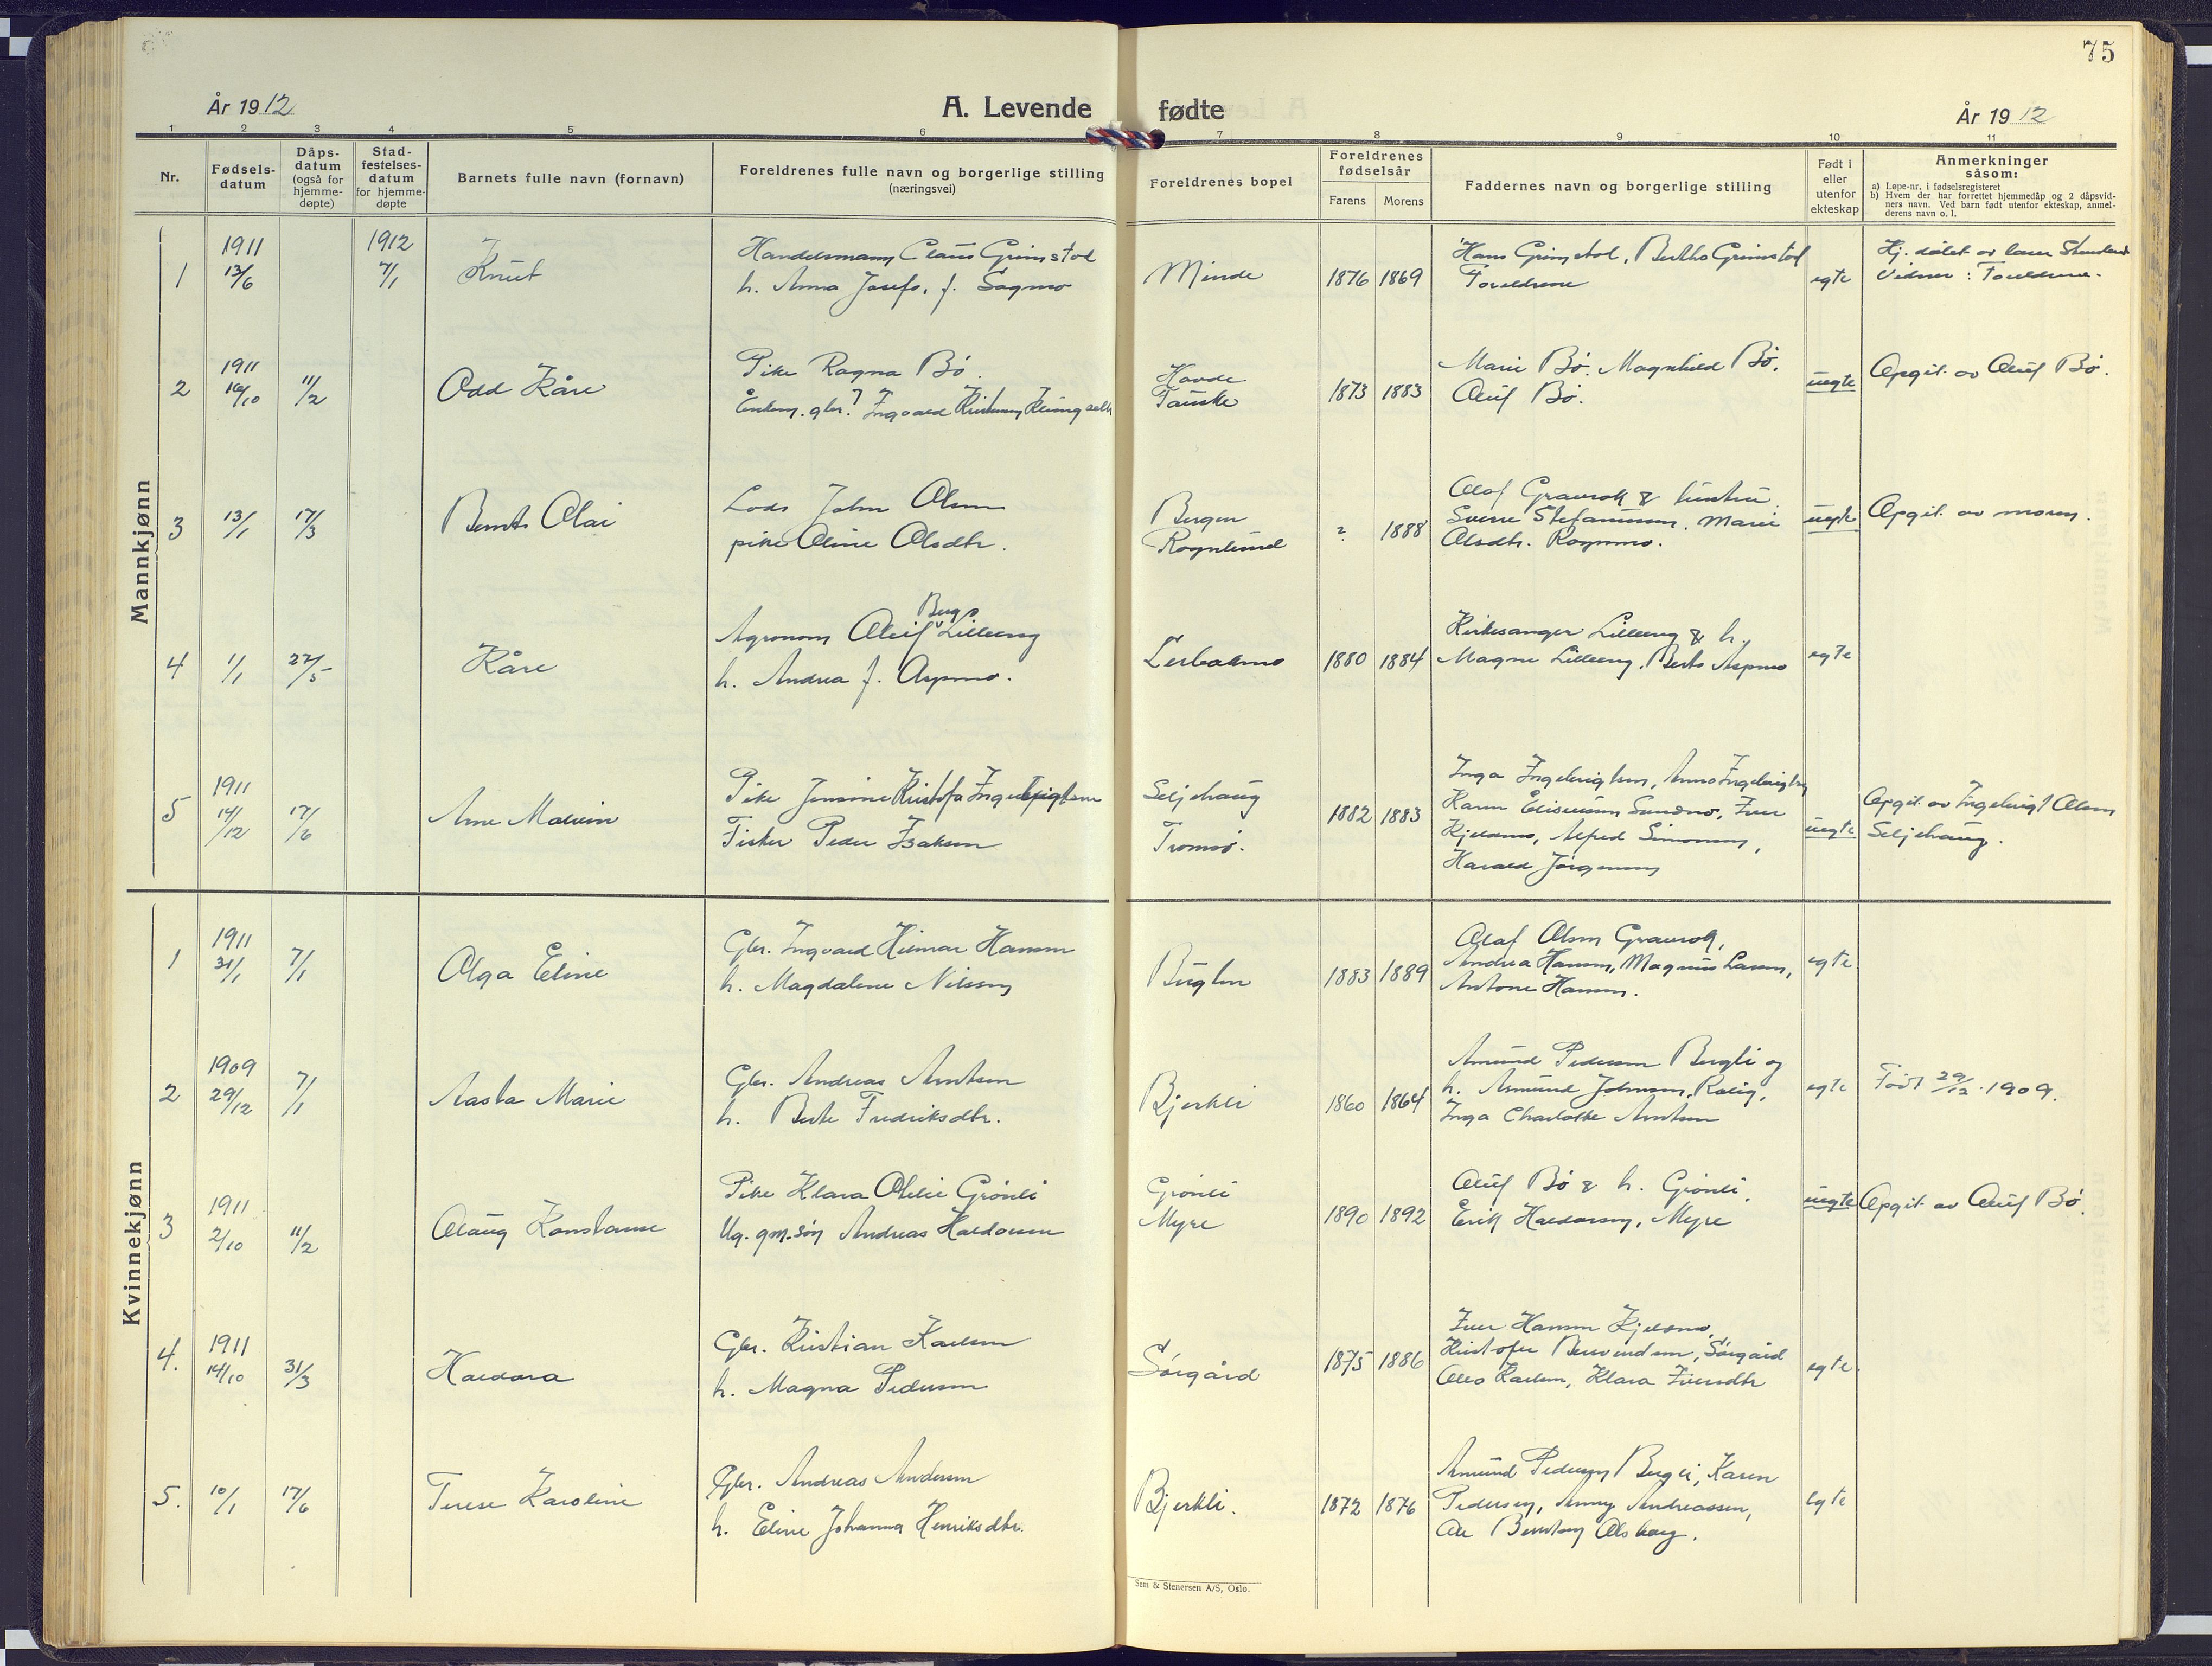 75
År 1912
A. Levende fødte
År 1912
1 2 3 4 5 6 7 8 9 10 11
Nr.
Fødsels-
datum
Dåps-
datum
(også for
hjemme-
døpte)
Stad-
festelses-
datum
for hjemme-
døpte
Barnets fulle navn (fornavn)
Foreldrenes fulle navn og borgerlige stilling
(næringsvei)
Foreldrenes bopel
Foreldrenes
fødselsår
Farens Morens
Faddernes navn og borgerlige stilling
Født i
eller
utenfor
ekteskap
Anmerkninger
såsom:
a) Løpe-nr. i fødselsregisteret
b) Hvem der har forrettet hjemmedåp og 2 dåpsvid-
ners navn. Ved barn født utenfor ekteskap, anmel-
derens navn o. l.
Mannkjønn
1
1911
13/6
1912
7/1
Knut
Handelsmann Claus Grimstad
h. Anna Josefs. f. Sagmo
Minde
1876 1869
Hans Grimstad, Grimstad
Foreldrene
egte
Hj. døbt av
Vidner: Foreldrene.
2
1911
16/10
11/2
Odd Kåre
Pike Ragna Bø.
Enkem. gbr.? Ingvard
1873 1883
Marie Bø. Magnhild Bø.
Oluf Bø.
uegte
Opgit. av Oluf Bø.
3
13/1
17/3
Olai
Lods John Olsen
pike Oline Olsdtr.
Bergen
Rognlund
? 1888
Olaf Gravrok & hustru
Sverre Stefanussen. Marie
Olsdtr. Rognmo.
uegte
Opgit. av moren.
4
1/1
27/5
Kåre
Bergs
Agronom Oluf Lilleeng
h. Andrea f. Aspmo.
1880 1884
Kirkesanger Lilleeng & h.
Magne Lilleeng. Aspmo
egte
5
1911
14/12
17/6
Arne Malvin
Pike Jensine Kristofa Ingebrigtsen
Fisker Peder Isaksen
Seljehaug
Tromsø.
1882 1883
Inga Ingebrigtsen, Anna Ingebrigtsen
Karen Eliseussen Sundmo, Iver
Kjeldmo, Alfred Simonsen,
Harald Jørgensen
uegte
Opgit av Ingebrigt Olsen
Seljehaug.
Kvinnekjønn
1
1911
31/1
7/1
Olga Eline
Gbr. Ingvard Hilmar Hansen
h. Magdalene Nilsen
1883 1889
Olaf Olsen Gravrok,
Andrea Hansen, Magnus Larsen,
Antone Hansen.
egte
2
1909
29/12
7/1
Aasta Marie
Gbr. Andreas Arntsen
h. Berte Fredriksdtr.
Bjerkli
1860 1864
Amund Pedersen Bergli og
h. Asmund Johnsen,
Inga Charlotte Arntsen
egte
Født 29/12 1909.
3
1911
2/10
11/2
Olaug Konstanse
Pike Klara Otelie Grønli
Ug. gm.søn Andreas Haldorsen
Grønli
Myre
1890 1892
Oluf Bø & h. Grønli.
Erik Haldorsen, Myre
uegte
Opgit av Oluf Bø.
4.
1911
14/10
31/3
Haldora
Gbr. Kristian Karlsen
h. Magna Pedersen
Sørgård
1875 1886
Iver Hansen Kjeldmo,
Kristofer Sørgård
Karlsen, Klara Iversdtr
egte.
5.
10/1
17/6
Terese Karoline
Gbr. Andreas Andersen
h. Eline Johanna Henriksdtr.
Bjerkli.
1872 1876
Amund Pedersen Bergli, Karen
Pedersen, Anny Andreassen,
Ole Berntsen Olsborg.
egte
Sem & Stenersen A/S, Oslo.